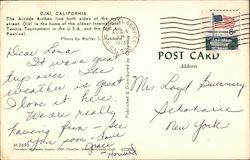 OJAI, CALIFORNIA
The Arcade Arches line both sides of the main
street. Ojai is the home of the oldest International
Tennis Tournament in the U.S.A. and the
Festival.
Photo by Walter
POST CARD
Address
Dear Lona-
It was a great
trip over. The
weather is great
I love it here
We are really
having fun - See
you soon - Love
Grace
Howard
Mrs Loyd Guernsey
Schoharie
New York